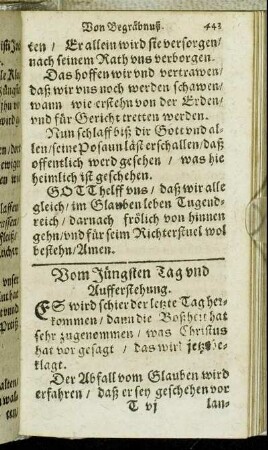 Von Begräbnuß. 443
ten / Er allein wird sie versorgen /
nach seinem Rath vns verborgen.
Das hoffen wir vnd vertrawen /
daß wir vns noch werden schawen /
wann wie erstehn von der Erden /
vnd für Gericht tretten werden.
Nun schlaff biß dir Gott vnd al-
len / seine Posaun läst erschallen / daß
offentlich werd gesehen / was hie
heimlich ist geschehen.
GOTT helff vns / daß wir alle
gleich / im Glauben leben Tugend-
reich / darnach frölich von hinnen
gehn / vnd für seim Richterstuel wol
bestehn / Amen.
Vom Jüngsten Tag vnd
Aufferstehung.
ES wird schier der letzte Tag her-
kommen / dann die Boßheit hat
sehr zugenommen / was Christus
hat vor gesagt / das wird jetzt be-
klagt.
Der Abfall vom Glauben wird
erfahren / daß er sey geschehen vor
T vj lan-